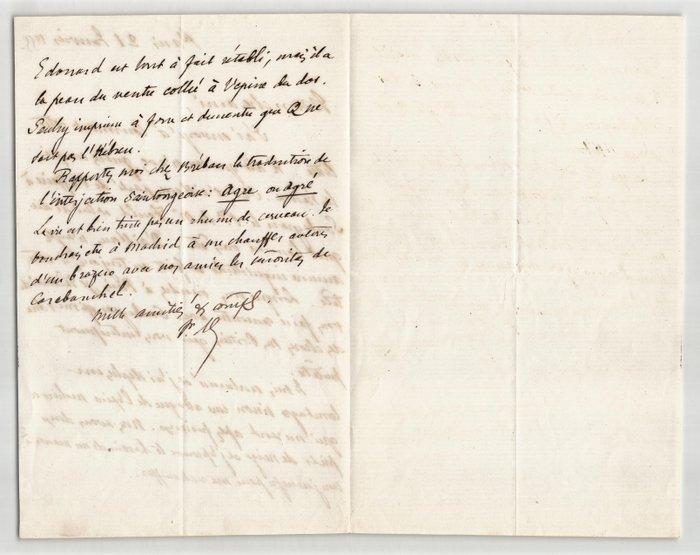 Edouard est tout à fait rétabli, mais il a
la peau du ventre collée à l'épine du dos.
imprime à force et démontre que Q ne
sait pas l'Hébreu.
Rapportez moi chez Brébant la traduction de
l'interjection Saintongeoise : agre ou agré
La vie est bien triste par un rhume de cerveau. Je
voudrais être à Madrid à me chauffer autour
d'un brazero avec nos amies les señoritas de
Carabanchel.
Mille amitiés & compts.
Pr M